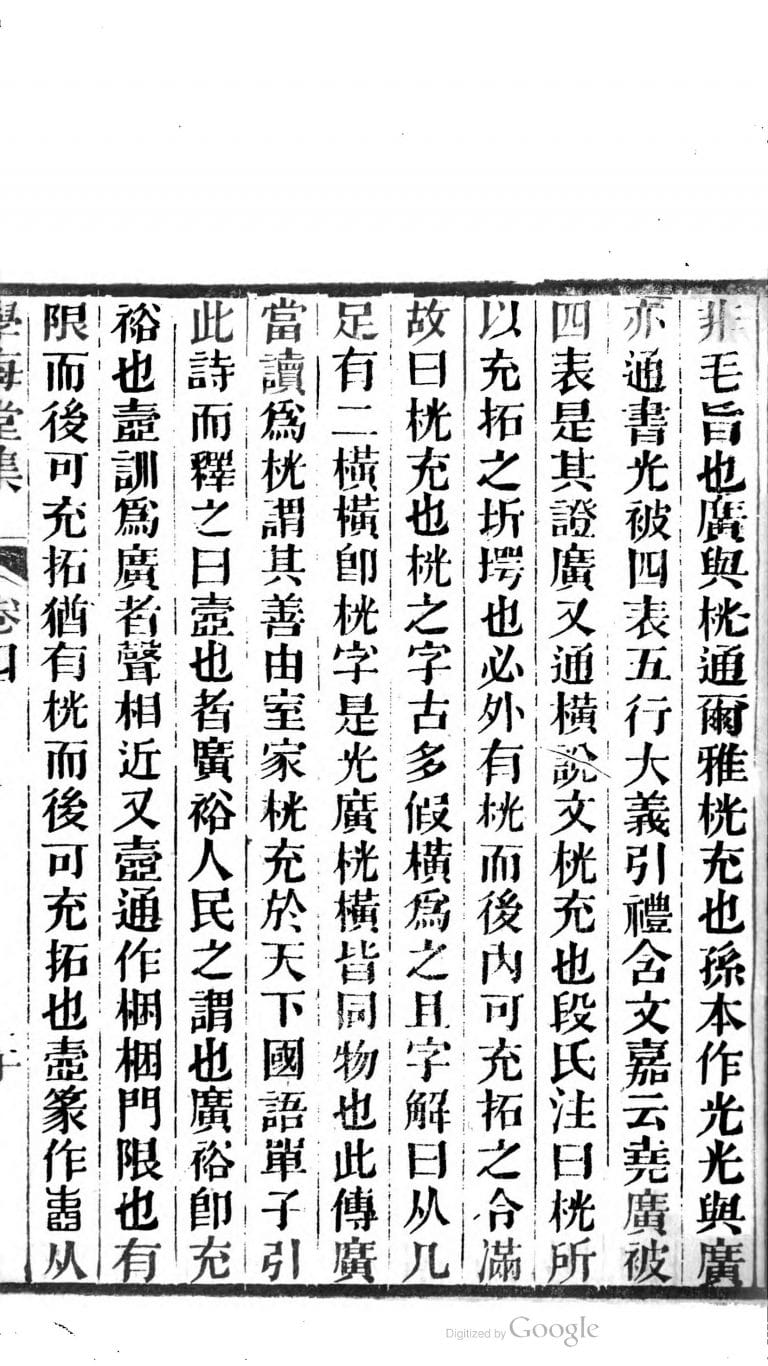 非毛旨也廣與桄通爾雅桄充也孫本作光光與廣
亦通書光被四表五行大義引禮含文嘉云堯廣被
四表是其證廣又通橫說文桄充也段氏注曰桄所
以充拓之圻堮也必外有桄而後內可充拓之令滿
故曰桄充也桄之字古多假橫爲之且字解曰从几
足有二橫橫卽桄字是光廣桄橫皆同物也此傳廣
當讀爲桄謂其善由室家桄充於天下國語單子引
此詩而釋之曰壼也者廣裕人民之謂也廣裕卽充
裕也壼訓爲廣者聲相近又壼通作梱梱門限也有
限而後可充拓猶有桄而後可充拓也壼篆作𡈚从
學海堂集 卷四
Digitized by Google